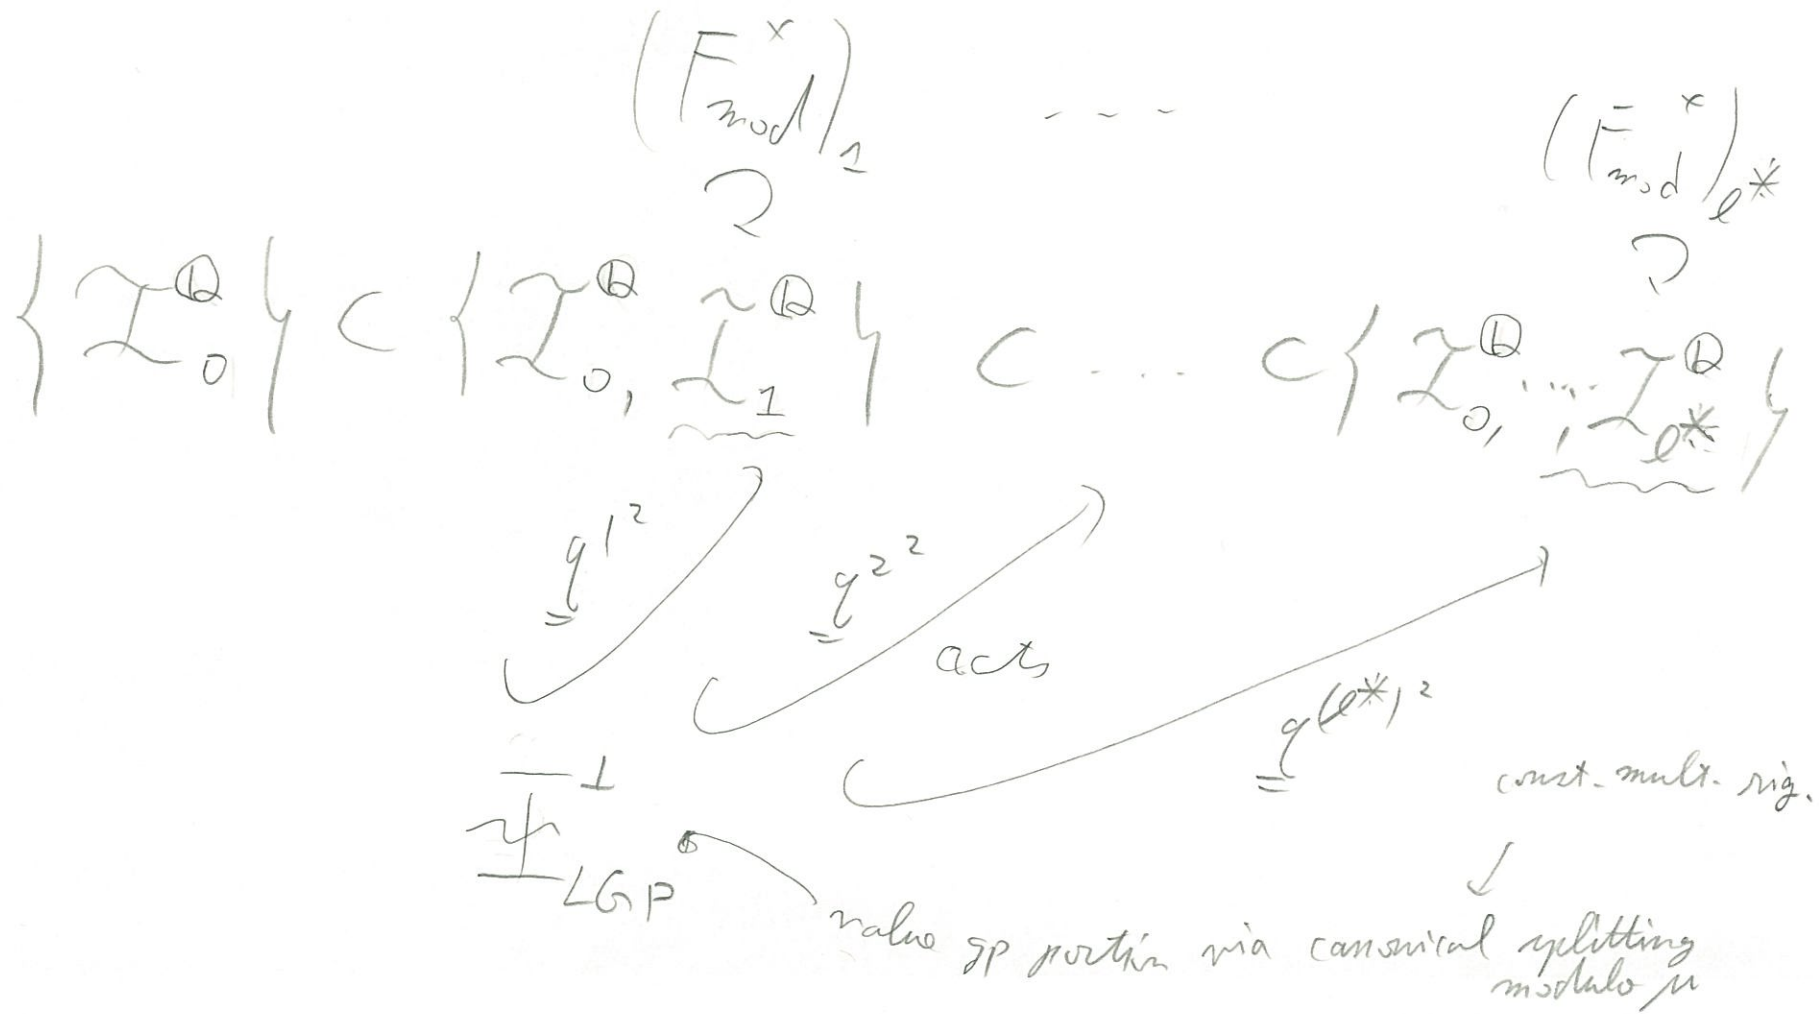 (F_mod^×)_1 - - - (F_mod^×)_l*
{ I_0^Q } ⊂ { I_0^Q, I_1^Q } ⊂ ···· ⊂ { I_0^Q, ...., I_l*^Q }
q^1^2
q^2^2
acts
q^(l*)^2
Ψ^⊥_LGP
const. mult. rig.
value gp portion via canonical splitting
modulo μ